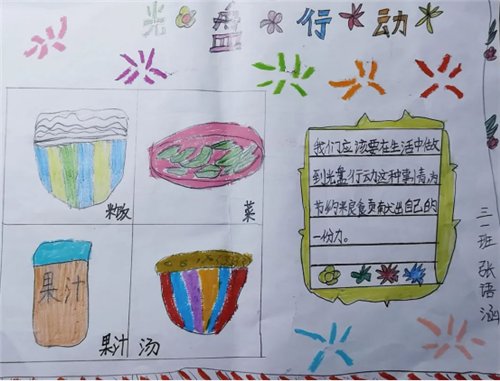 光盘行动
我们应该要在生活中做
到光盘行动这种事情,为
节约粮食贡献出自己的
一份力。
米饭
菜
果汁
果汁
汤
三一班 张语涵